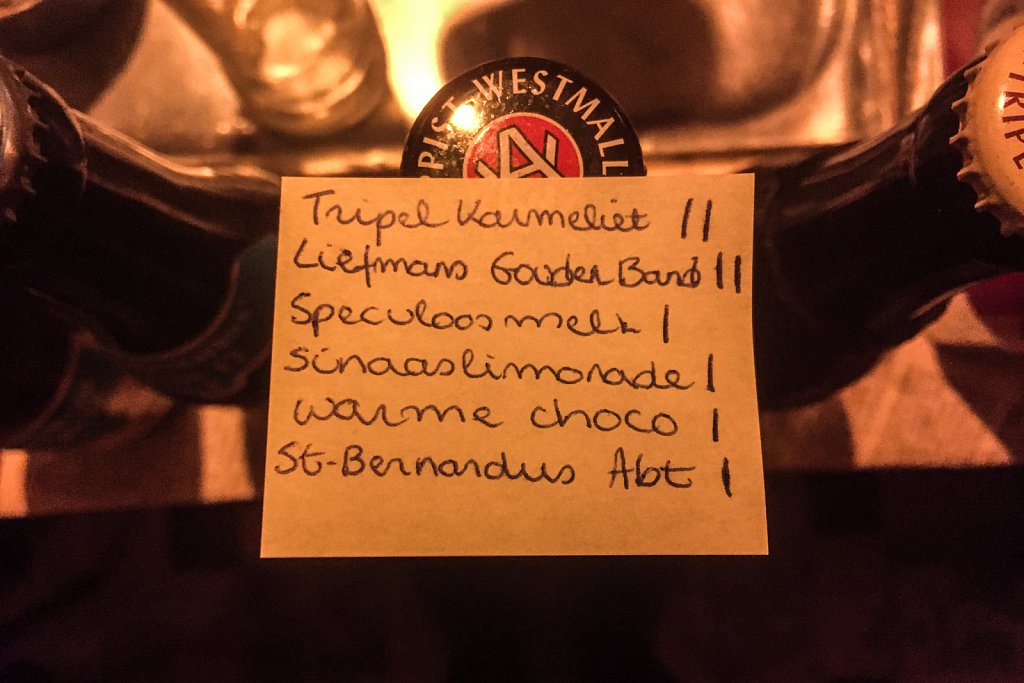 PIST WESTMALL
TRIPE
Tripel Karmeliet ||
Liefmans Gouden Band ||
Speculoosmelk |
Sinaaslimonade |
warme choco |
St-Bernardus Abt |